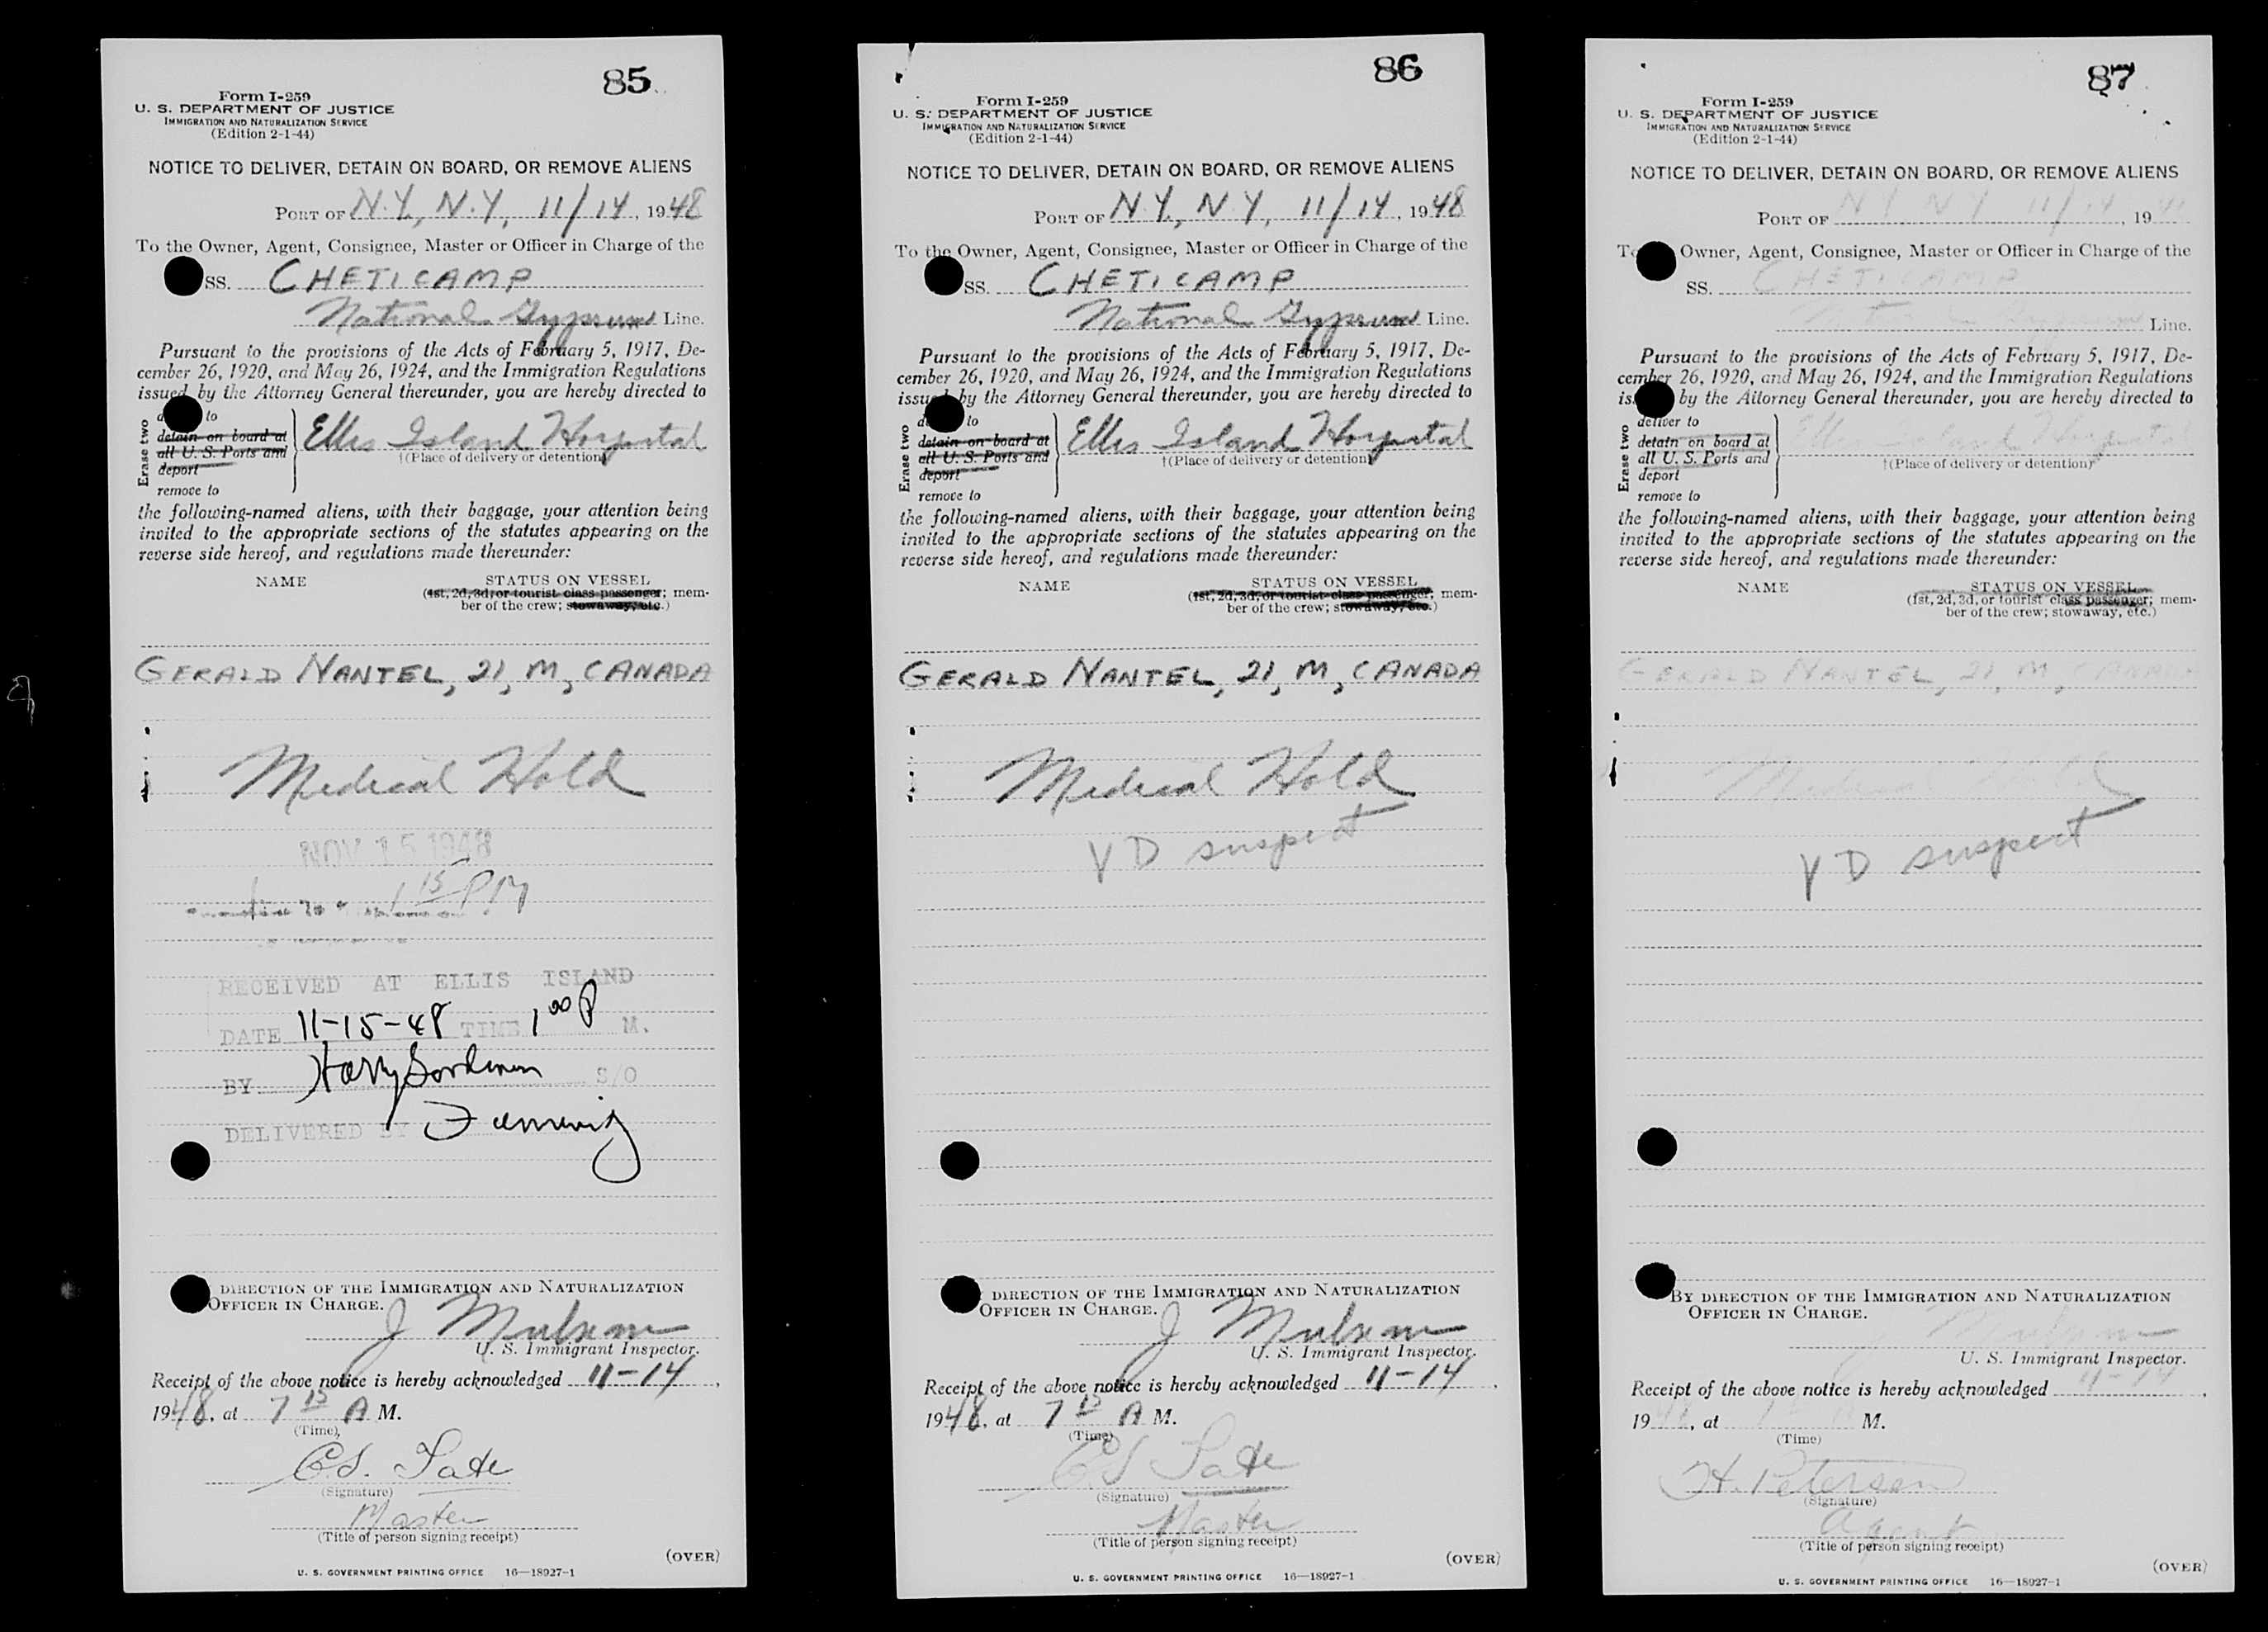 85
Form I-259
U. S. DEPARTMENT OF JUSTICE
IMMIGRATION AND NATURALIZATION SERVICE
(Edition 2-1-44)
NOTICE TO DELIVER, DETAIN ON BOARD, OR REMOVE ALIENS
PORT OF N.Y., N.Y, 11/14, 1948
To the Owner, Agent, Consignee, Master or Officer in Charge of the
SS. CHETICAMP
National Gypsum Line.
Pursuant to the provisions of the Acts of February 5, 1917, De-
cember 26, 1920, and May 26, 1924, and the Immigration Regulations
issued by the Attorney General thereunder, you are hereby directed to
Erase two
to
detain on board at
all U. S. Ports and
deport
remove to
Ellis Island Hospital
†(Place of delivery or detention)
the following-named aliens, with their baggage, your attention being
invited to the appropriate sections of the statutes appearing on the
reverse side hereof, and regulations made thereunder:
NAME STATUS ON VESSEL
(1st, 2d, 3d, or tourist class passenger; mem-
ber of the crew; stowaway, etc.)
GERALD NANTEL, 21, M, CANADA
Medical Hold
NOV 15 1948
1 15 PM
RECEIVED AT ELLIS ISLAND
DATE 11-15-48 TIME 1 00 P M.
BY Harry S/O
DELIVERED BY
DIRECTION OF THE IMMIGRATION AND NATURALIZATION
OFFICER IN CHARGE.
J
U. S. Immigrant Inspector.
Receipt of the above notice is hereby acknowledged 11-14,
1948, at 7 15 A M.
(Time)
C.S. Tate
(Signature)
Master
(Title of person signing receipt)
(OVER)
U. S. GOVERNMENT PRINTING OFFICE 16—18927-1
86
Form I-259
U. S. DEPARTMENT OF JUSTICE
IMMIGRATION AND NATURALIZATION SERVICE
(Edition 2-1-44)
NOTICE TO DELIVER, DETAIN ON BOARD, OR REMOVE ALIENS
PORT OF N.Y., N.Y, 11/14, 1948
To the Owner, Agent, Consignee, Master or Officer in Charge of the
SS. CHETICAMP
National Gypsum Line.
Pursuant to the provisions of the Acts of February 5, 1917, De-
cember 26, 1920, and May 26, 1924, and the Immigration Regulations
by the Attorney General thereunder, you are hereby directed to
Erase two
to
detain on board at
all U. S. Ports and
deport
remove to
Ellis Island Hospital
†(Place of delivery or detention)
the following-named aliens, with their baggage, your attention being
invited to the appropriate sections of the statutes appearing on the
reverse side hereof, and regulations made thereunder:
NAME STATUS ON VESSEL
(1st, 2d, 3d, or tourist class passenger; mem-
ber of the crew; stowaway, etc.)
GERALD NANTEL, 21, M, CANADA
Medical Hold
VD suspect
DIRECTION OF THE IMMIGRATION AND NATURALIZATION
OFFICER IN CHARGE.
J
U. S. Immigrant Inspector.
Receipt of the above notice is hereby acknowledged 11-14,
1948, at 7 15 A M.
(Time)
CS Tate
(Signature)
Master
(Title of person signing receipt)
(OVER)
U. S. GOVERNMENT PRINTING OFFICE 16—18927-1
87
Form I-259
U. S. DEPARTMENT OF JUSTICE
IMMIGRATION AND NATURALIZATION SERVICE
(Edition 2-1-44)
NOTICE TO DELIVER, DETAIN ON BOARD, OR REMOVE ALIENS
PORT OF N Y N Y 11/14, 1948
Owner, Agent, Consignee, Master or Officer in Charge of the
SS. CHETICAMP
National Gypsum Line.
Pursuant to the provisions of the Acts of February 5, 1917, De-
cember 26, 1920, and May 26, 1924, and the Immigration Regulations
by the Attorney General thereunder, you are hereby directed to
Erase two
deliver to
detain on board at
all U. S. Ports and
deport
remove to
Ellis Island Hospital
†(Place of delivery or detention)
the following-named aliens, with their baggage, your attention being
invited to the appropriate sections of the statutes appearing on the
reverse side hereof, and regulations made thereunder:
NAME STATUS ON VESSEL
(1st, 2d, 3d, or tourist class passenger; mem-
ber of the crew; stowaway, etc.)
GERALD NANTEL, 21, M, CANADA
Medical Hold
VD suspect
BY DIRECTION OF THE IMMIGRATION AND NATURALIZATION
OFFICER IN CHARGE.
U. S. Immigrant Inspector.
Receipt of the above notice is hereby acknowledged 11-14,
1948, at 7 M.
(Time)
H. Petersen
(Signature)
Agent
(Title of person signing receipt)
(OVER)
U. S. GOVERNMENT PRINTING OFFICE 16—18927-1